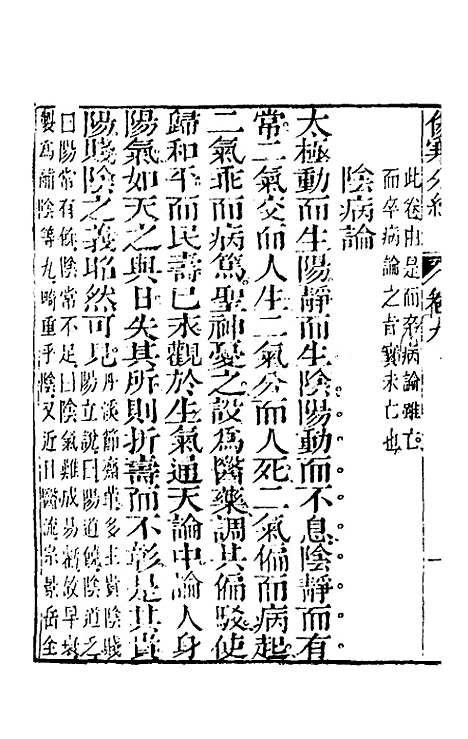 傷寒分經 卷九 一
此卷由是而卒病論雖亡
而卒病論之旨實未亡也
陰病論
太極動而生陽靜而生陰陽動而不息陰靜而有
常二氣交而人生二氣分而人死二氣偏而病起
二氣乖而病篤聖神憂之設爲醫藥調其偏駁使
歸和平而民壽已永觀於生氣通天論中論人身
陽氣如天之與日失其所則折壽而不彰是其貴
陽賤陰之義昭然可見丹溪節齋輩多主貴陰賤
陽立說曰陽道饒陰道乏
曰陽常有餘陰常不足曰陰氣難成易虧故早衰
製爲補陰等丸畸重乎陰又近日醫流宗景岳全